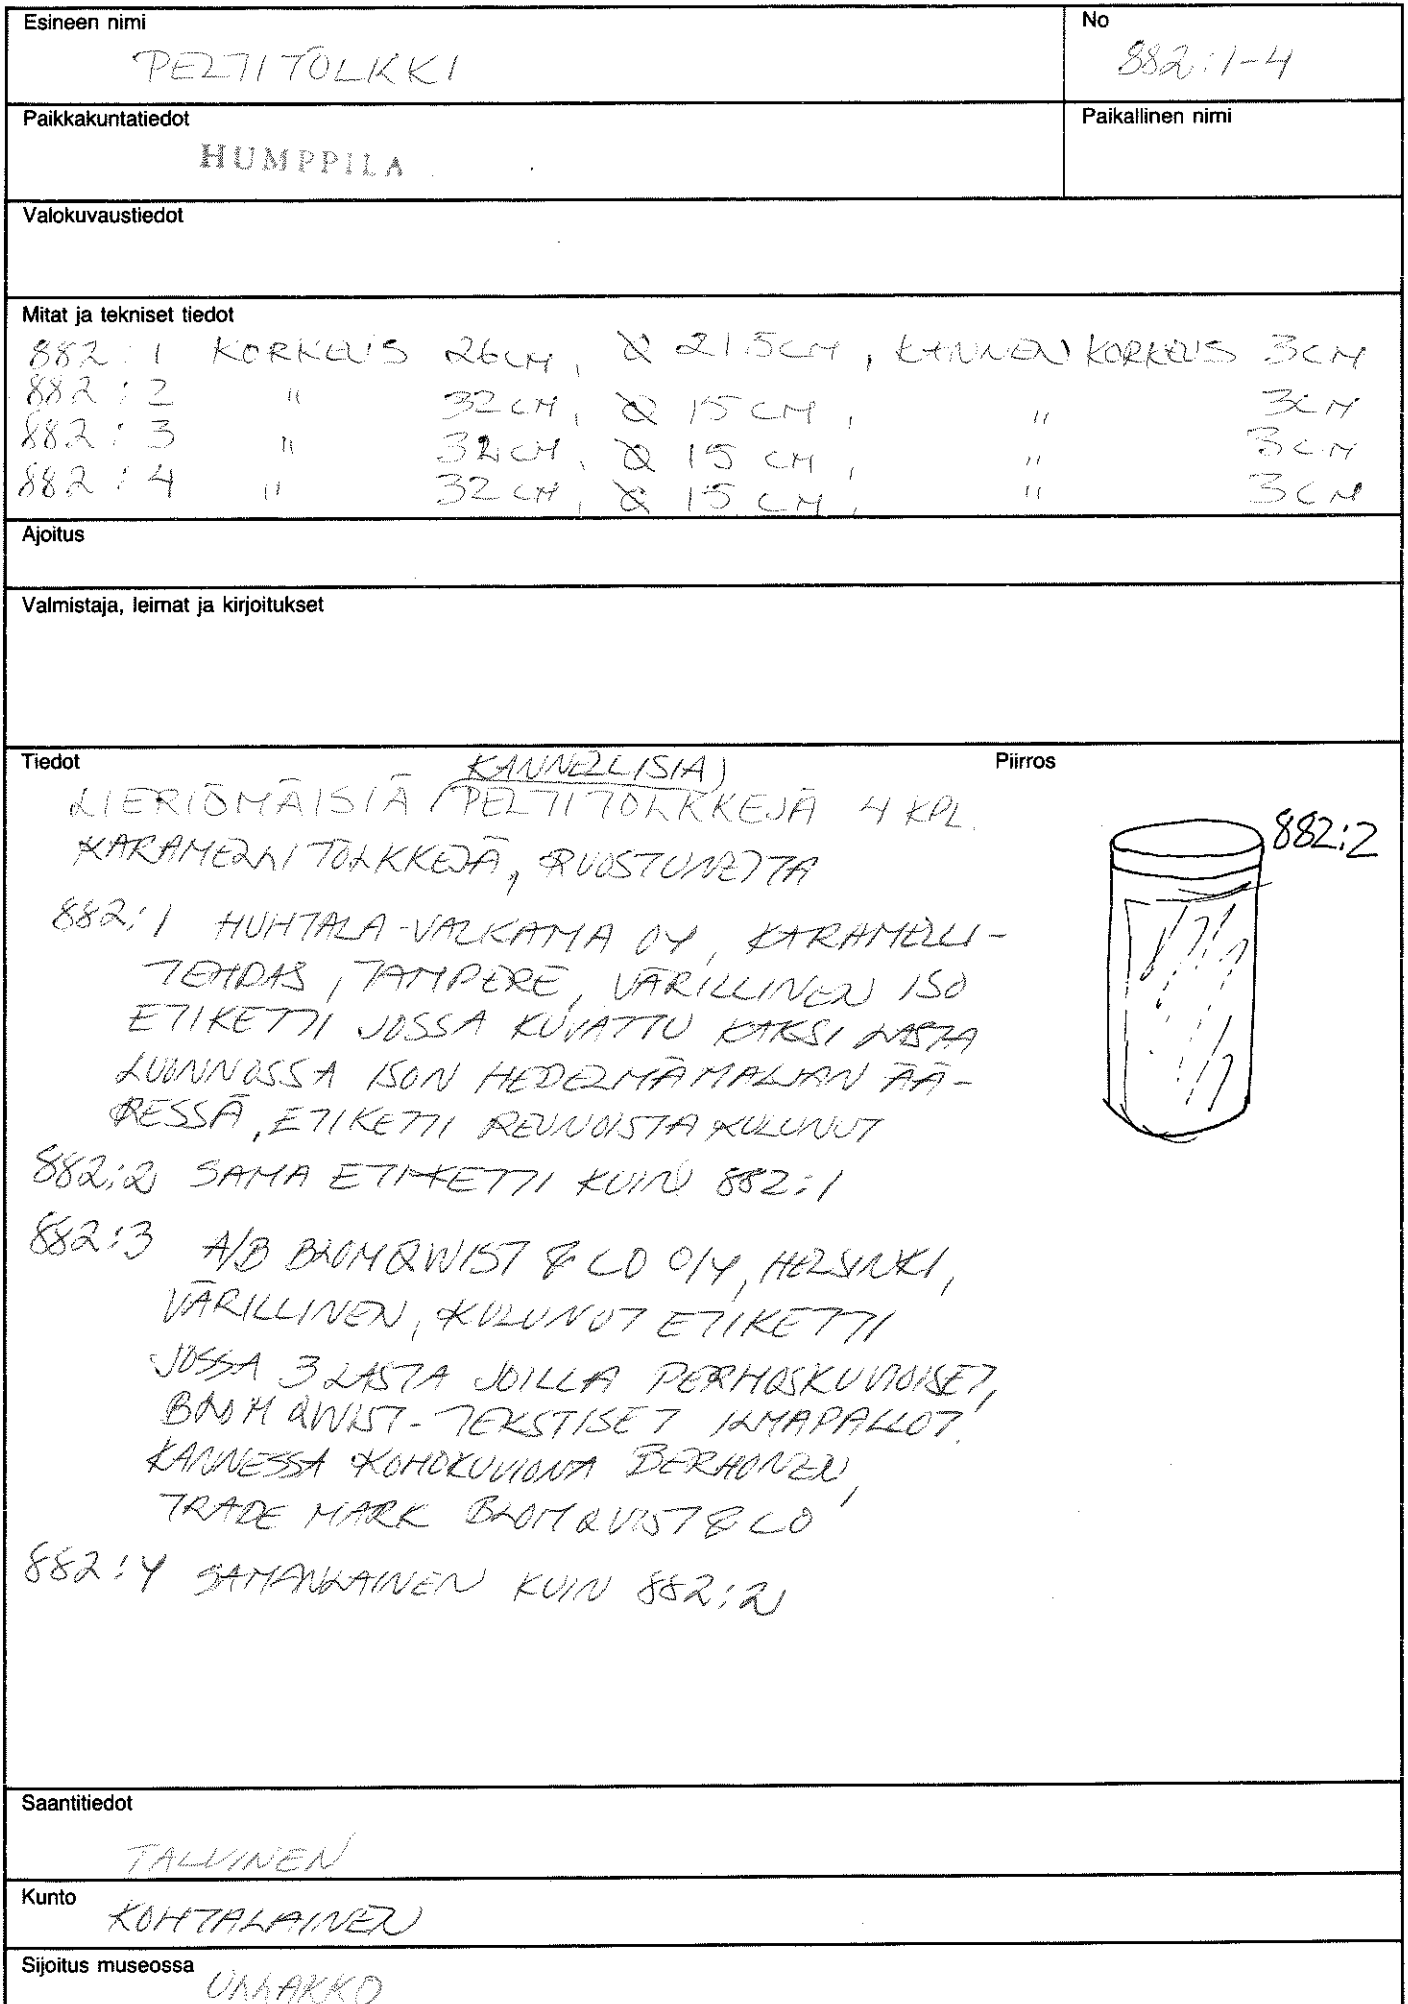 Esineen nimi
PELTITÖLKKI
No
882:1-4
Paikkakuntatiedot
HUMPPILA
Paikallinen nimi
Valokuvaustiedot
Mitat ja tekniset tiedot
882:1 KORKEUS 26CM, Ø 21.5CM, KANNEN KORKEUS 3CM
882:2 " 32CM, Ø 15CM, " 3CM
882:3 " 32CM, Ø 15 CM, " 3CM
882:4 " 32CM, Ø 15 CM, " 3CM
Ajoitus
Valmistaja, leimat ja kirjoitukset
Tiedot
Piirros
KANNELLISIA
LIERIÖMÄISIÄ PELTITÖLKKEJÄ 4 KPL.
KARAMELLITÖLKKEJÄ, RUOSTUNETTA
882:1 HUHTALA-VALKAMA OY, KARAMELLI-
TEHDAS, TAMPERE, VÄRILLINEN ISO
ETIKETTI JOSSA KUVATTU KAKSI LASTA
LUONNOSSA ISON HEDELMÄMALJAN ÄÄ-
RESSÄ, ETIKETTI REUNOISTA KULUNUT
882:2 SAMA ETIKETTI KUIN 882:1
882:3 A/B BLOMQWIST & CO O/Y, HELSINKI,
VÄRILLINEN, KULUNUT ETIKETTI
JOSSA 3 LASTA JOILLA PERHOSKUVIOISET,
BLOMQWIST-TEKSTISET ILMAPALLOT.
KANNESSA KOHOKUVIONA PERHONEN,
TRADE MARK BLOMQVIST & CO
882:4 SAMANLAINEN KUIN 882:2
882:2
Saantitiedot
TALVINEN
Kunto
KOHTALAINEN
Sijoitus museossa
ULLAKKO